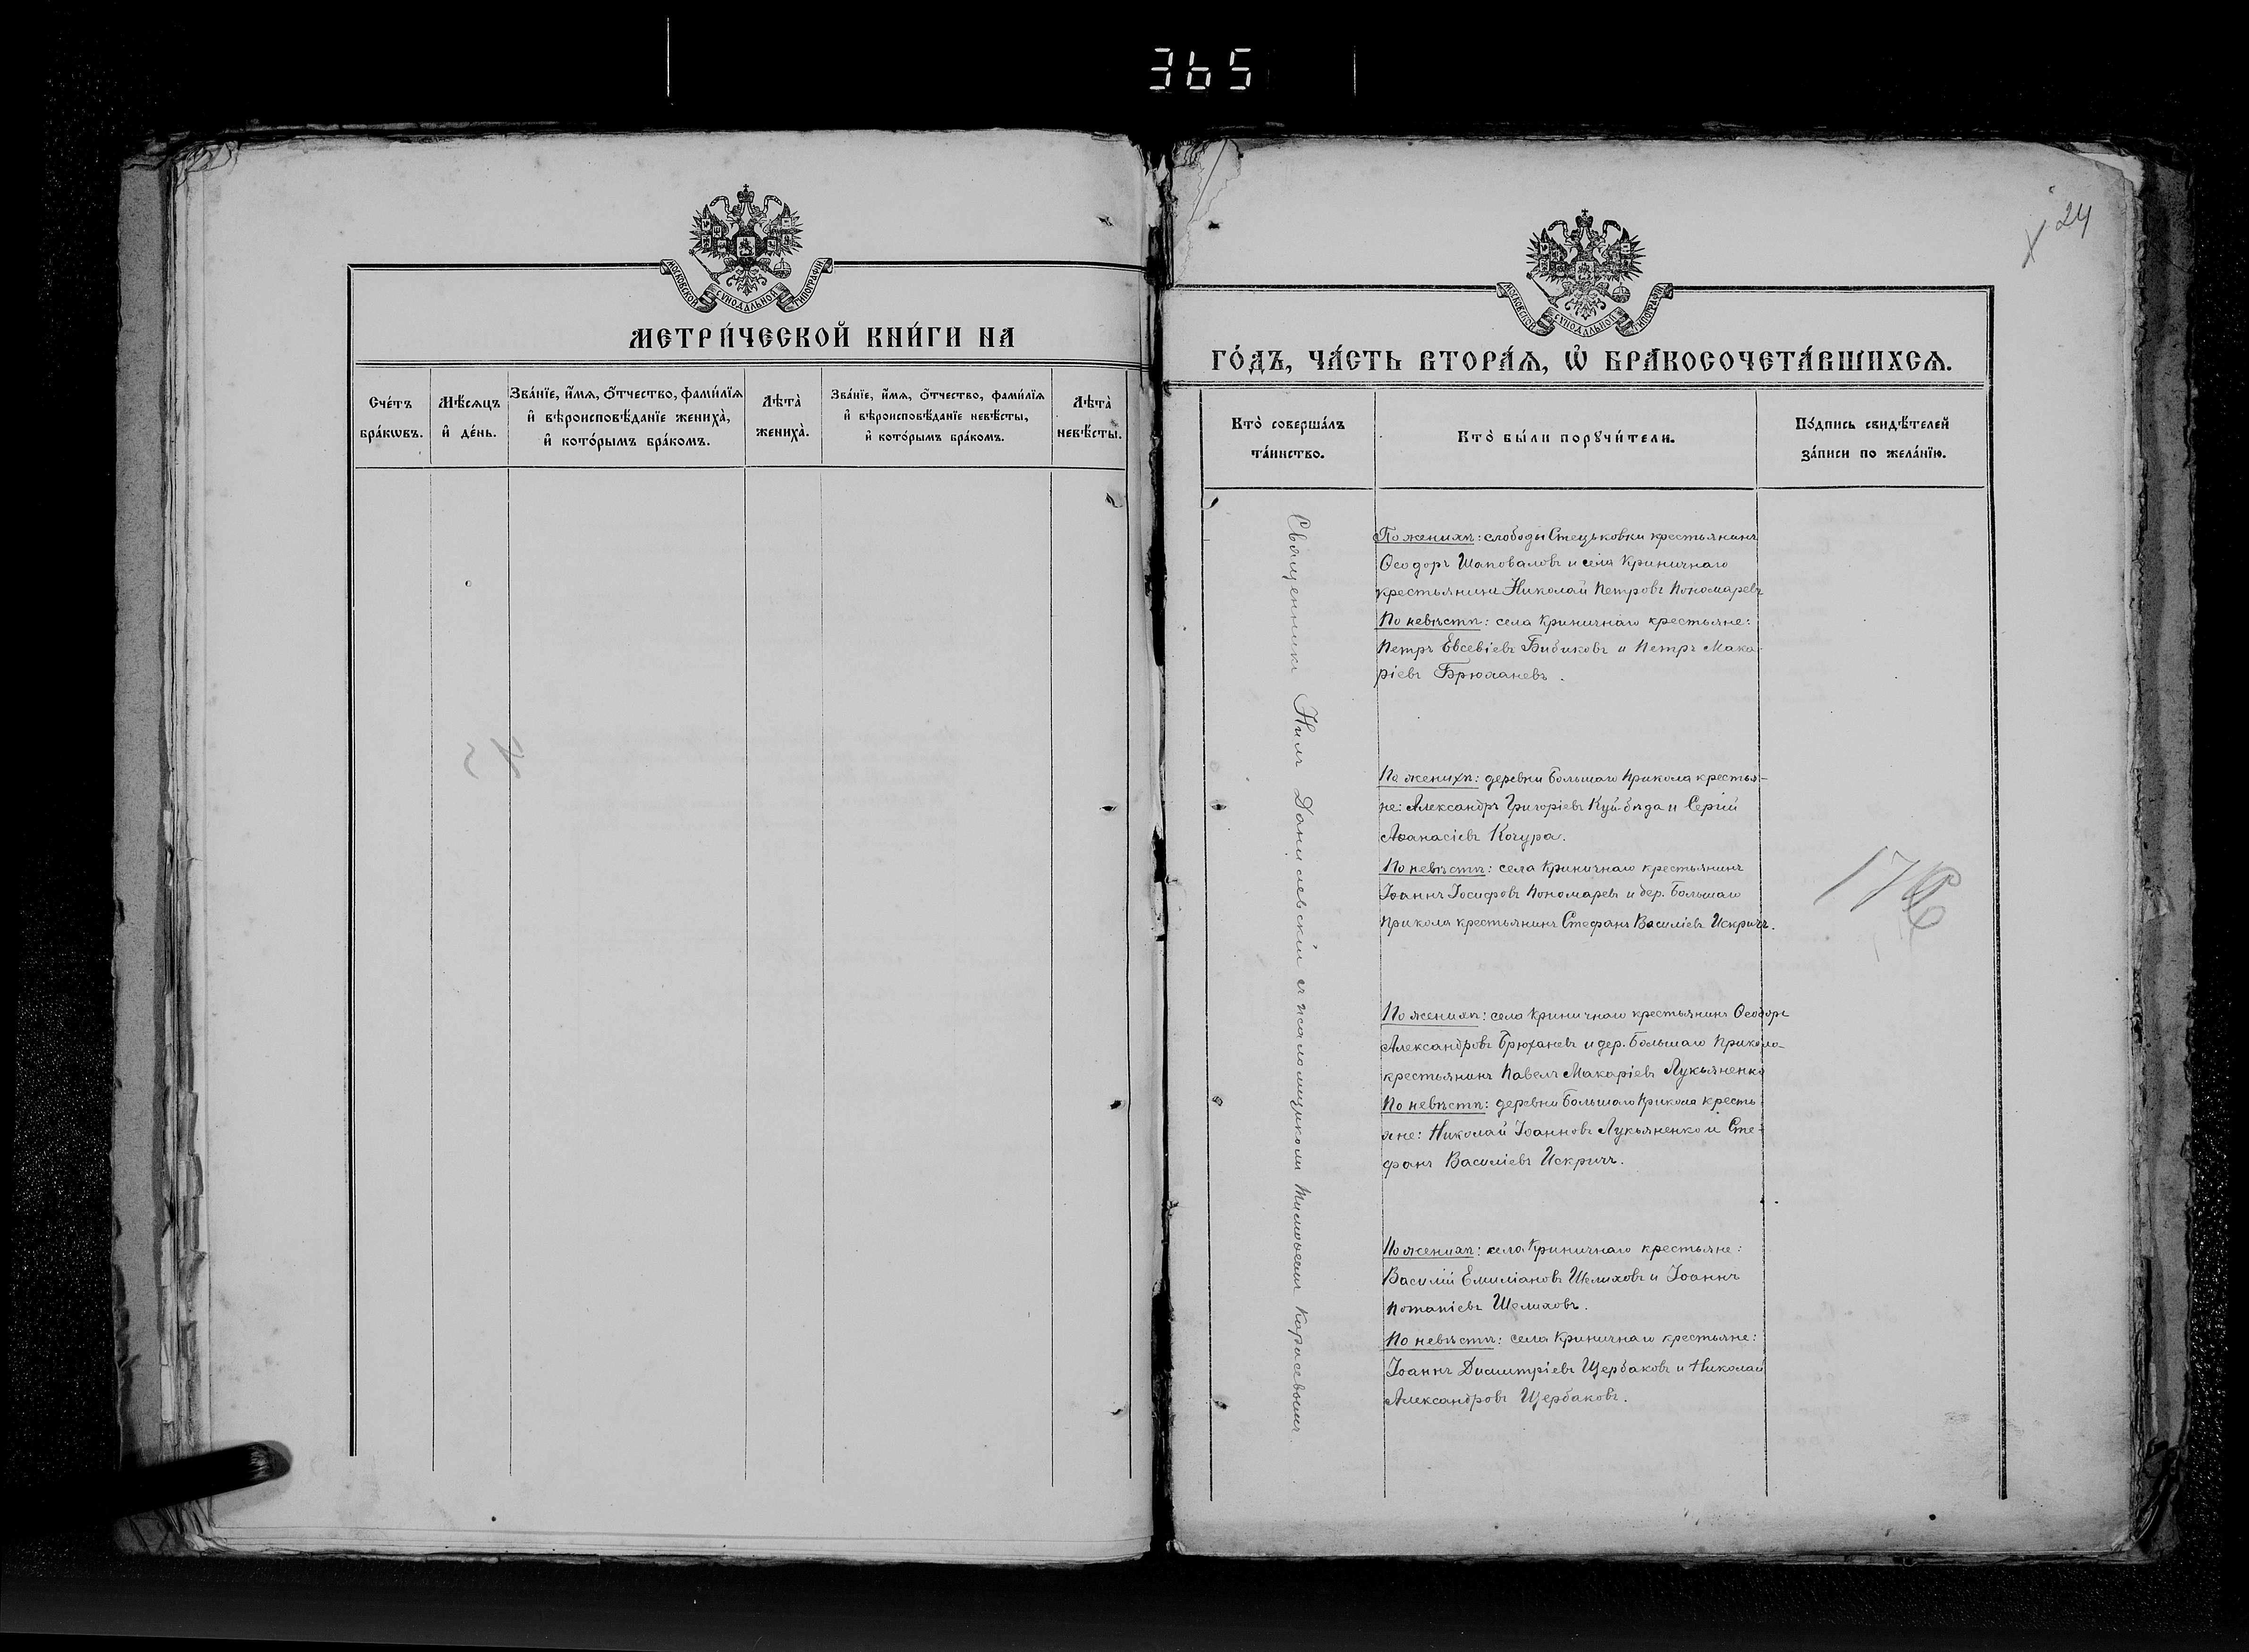 365
МОСКОВСКОЙ СѴНОДАЛЬНОЙ ТИПОГРАФІИ
МЕТРИ́ЧЕСКОЙ КНИ́ГИ НА
Сче́тъ бра́кѡвъ.
Мѣ́сяцъ и҆ де́нь.
Зва́нїе, и҆́мѧ, ѻ҆́тчество, фами́лїѧ
и҆ вѣроисповѣ́данїе жениха̀,
и҆ кото́рымъ бра́комъ.
Лѣта̀ жениха̀.
Зва́нїе, и҆́мѧ, ѻ҆́тчество, фами́лїѧ
и҆ вѣроисповѣ́данїе невѣ́сты,
и҆ кото́рымъ бра́комъ.
Лѣта̀ невѣ́сты.
24
МОСКОВСКОЙ СѴНОДАЛЬНОЙ ТИПОГРАФІИ
ГО́ДЪ, ЧА́СТЬ ВТОРА́Ѧ, Ѽ БРАКОСОЧЕТА́ВШИХСѦ.
Кто̀ соверша́лъ
та́инство.
Кто̀ бы́ли порꙋчи́тели.
По́дпись свидѣ́телей
за́писи по жела́нїю.
Священникъ Нилъ Данилевскій съ псаломщикомъ Тимоѳеемъ Карасевымъ.
По женихѣ: слободы Стецьковки крестьянинъ
Ѳеодоръ Шаповаловъ и села Криничнаго
крестьянинъ Николай Петровъ Пономаревъ
По невѣстѣ: села Криничнаго крестьяне:
Петръ Евсевіевъ Бибиковъ и Петръ Мака-
ріевъ Брюханевъ.
По женихѣ: деревни Большаго Прикола крестья-
не: Александръ Григоріевъ Куйбѣда и Сергій
Аѳанасіевъ Кочура.
По невѣстѣ: села Криничнаго крестьянинъ
Іоаннъ Іосифовъ Пономаревъ и дер. Большаго
Прикола крестьянинъ Стефанъ Василіевъ Искричъ.
По женихѣ: села Криничнаго крестьянинъ Ѳеодоръ
Александровъ Брюханевъ и дер. Большаго Прикола-
крестьянинъ Павелъ Макаріевъ Лукьяненко
По невѣстѣ: деревни Большаго Прикола кресть-
яне: Николай Іоанновъ Лукьяненко и Сте-
фанъ Василіевъ Искричъ.
По женихѣ: села Криничнаго крестьяне:
Василій Емиліановъ Шелиховъ и Іоаннъ
Потапіевъ Шелиховъ.
По невѣстѣ: села Криничнаго крестьяне:
Іоаннъ Димитріевъ Щербаковъ и Николай
Александровъ Щербаковъ.